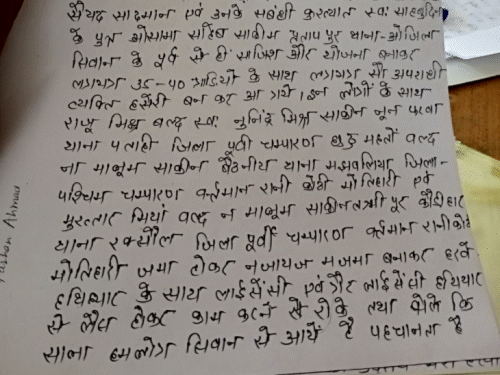 सैयद सादमान एवं उनके संबंधी कुख्यात स्व: साहबुद्दिन
के पुत्र ओसामा सहिब साकीम प्रताप पुर थाना-ओ जिला
सिवान के पूर्व से ही साजिश और योजना बनाकर
लगभग 35-40 गाडियो के साथ लगभग सौ अपराधी
व्यक्ति हर्सेरी बन कर आ गये। इन लोगो के साथ
राजू मिश्र वल्द स्व: मुनिंद्र मिश्र साकीन नून परवा
थाना पताही जिला पूर्वी चम्पारण छठु महतो वल्द
ना मालूम साकीन बैठनीय थाना मझवलिया जिला-
पश्चिम चम्पारण वर्तमान रानी कोठी मोतिहारी एवं
मुस्तार मियां वल्द न मालूम साकीन लक्ष्मीपुर कौरीहार
थाना रक्सौल जिला पूर्वी चम्पारण वर्तमान रानी कोठी
मोतिहारी जमा होकर नजायज मजमा बनाकर हरवे
हथियार के साथ लाईसेंसी एवं गैर लाईसेंसी हथियार
से लैस होकर काम करने से रोके तथा बोले कि
साला हमलोग सिवान से आये है पहचानता है
Lashan Ahmad